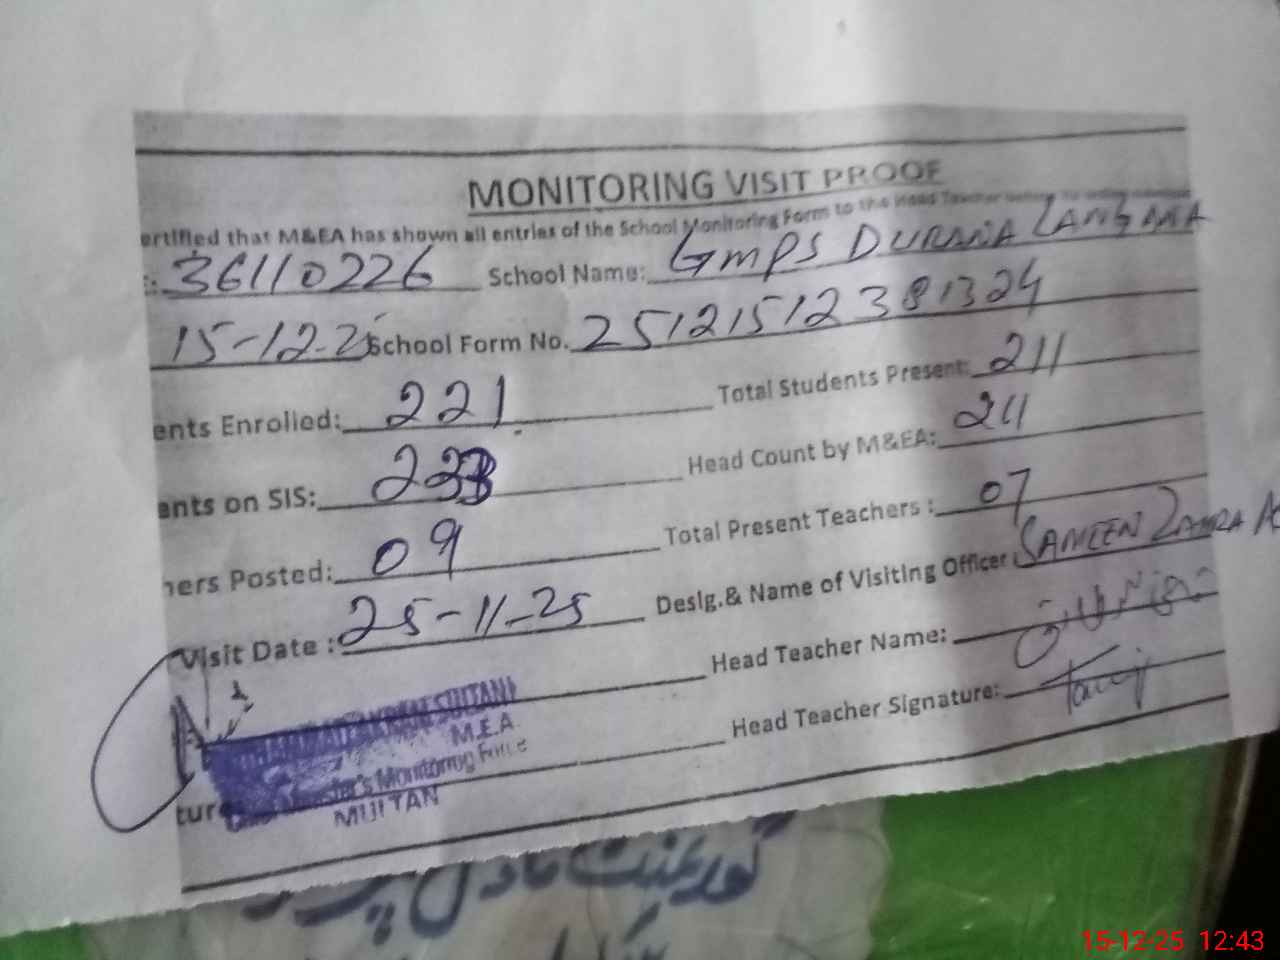 MONITORING VISIT PROOF
ertified that M&EA has shown all entries of the School Monitoring Form to the Head Teacher
: 36110226 School Name: GMPS DURANA LANGANA
15-12-25 School Form No. 25121512381324
ents Enrolled: 221 Total Students Present: 211
ents on SIS: 223 Head Count by M&EA: 211
hers Posted: 09 Total Present Teachers : 07
Visit Date : 25-11-25 Desig.& Name of Visiting Officer SAMEEN ZAHRA A
Head Teacher Name:
Head Teacher Signature:
M.E.A.
Monitoring Force
MULTAN
ture
گورنمنٹ ماڈل
15-12-25 12:43